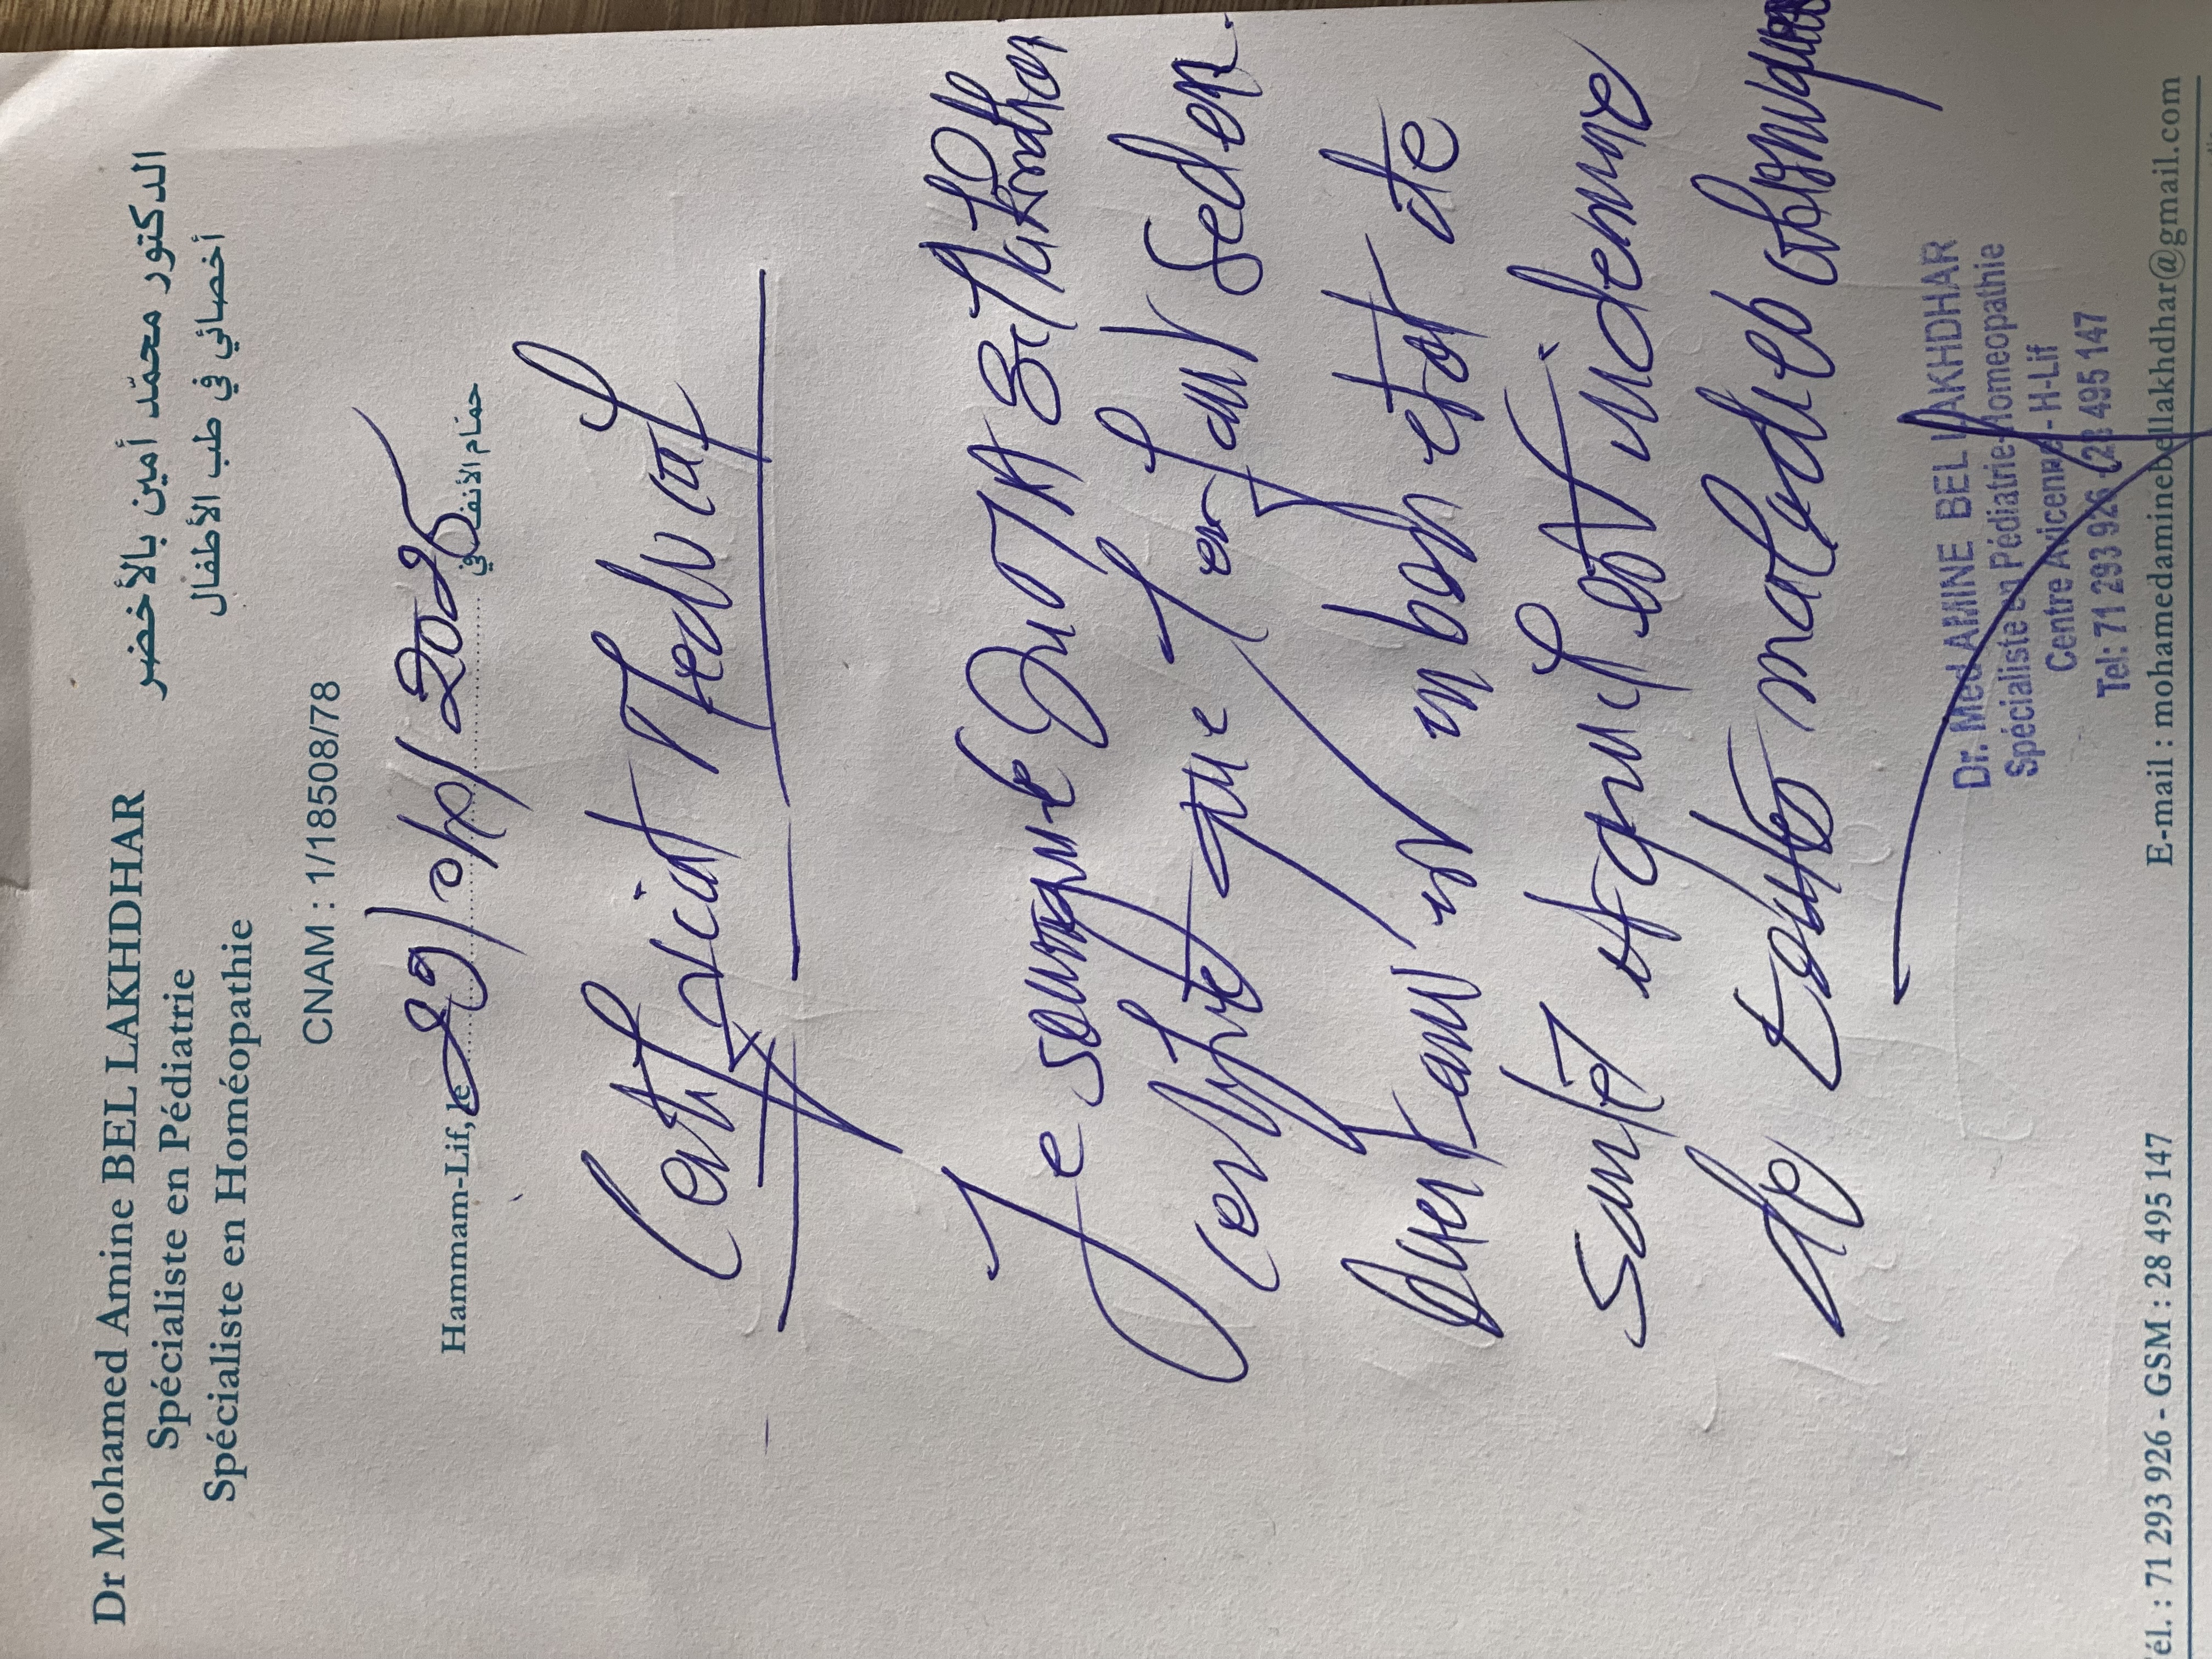 Dr Mohamed Amine BEL LAKHDHAR
Spécialiste en Pédiatrie
Spécialiste en Homéopathie
الدكتور محمّد أمين بالأخضر
أخصائي في طب الأطفال
CNAM : 1/18508/78
Hammam-Lif, le 29/04/2025 حمّام الأنف في
Certificat Medical
Je soussigné Dr MA Bel Lakhdhar
Certifie que l'enfant Seden
est en bon etat de
Santé et qu'il est indemne
de toutes maladies contagieuses
Dr. Med AMINE BEL LAKHDHAR
Spécialiste en Pédiatrie-Homeopathie
Centre Avicenne - H-Lif
Tel: 71 293 926 - 28 495 147
él. : 71 293 926 - GSM : 28 495 147 E-mail : mohamedaminebellakhdhar@gmail.com